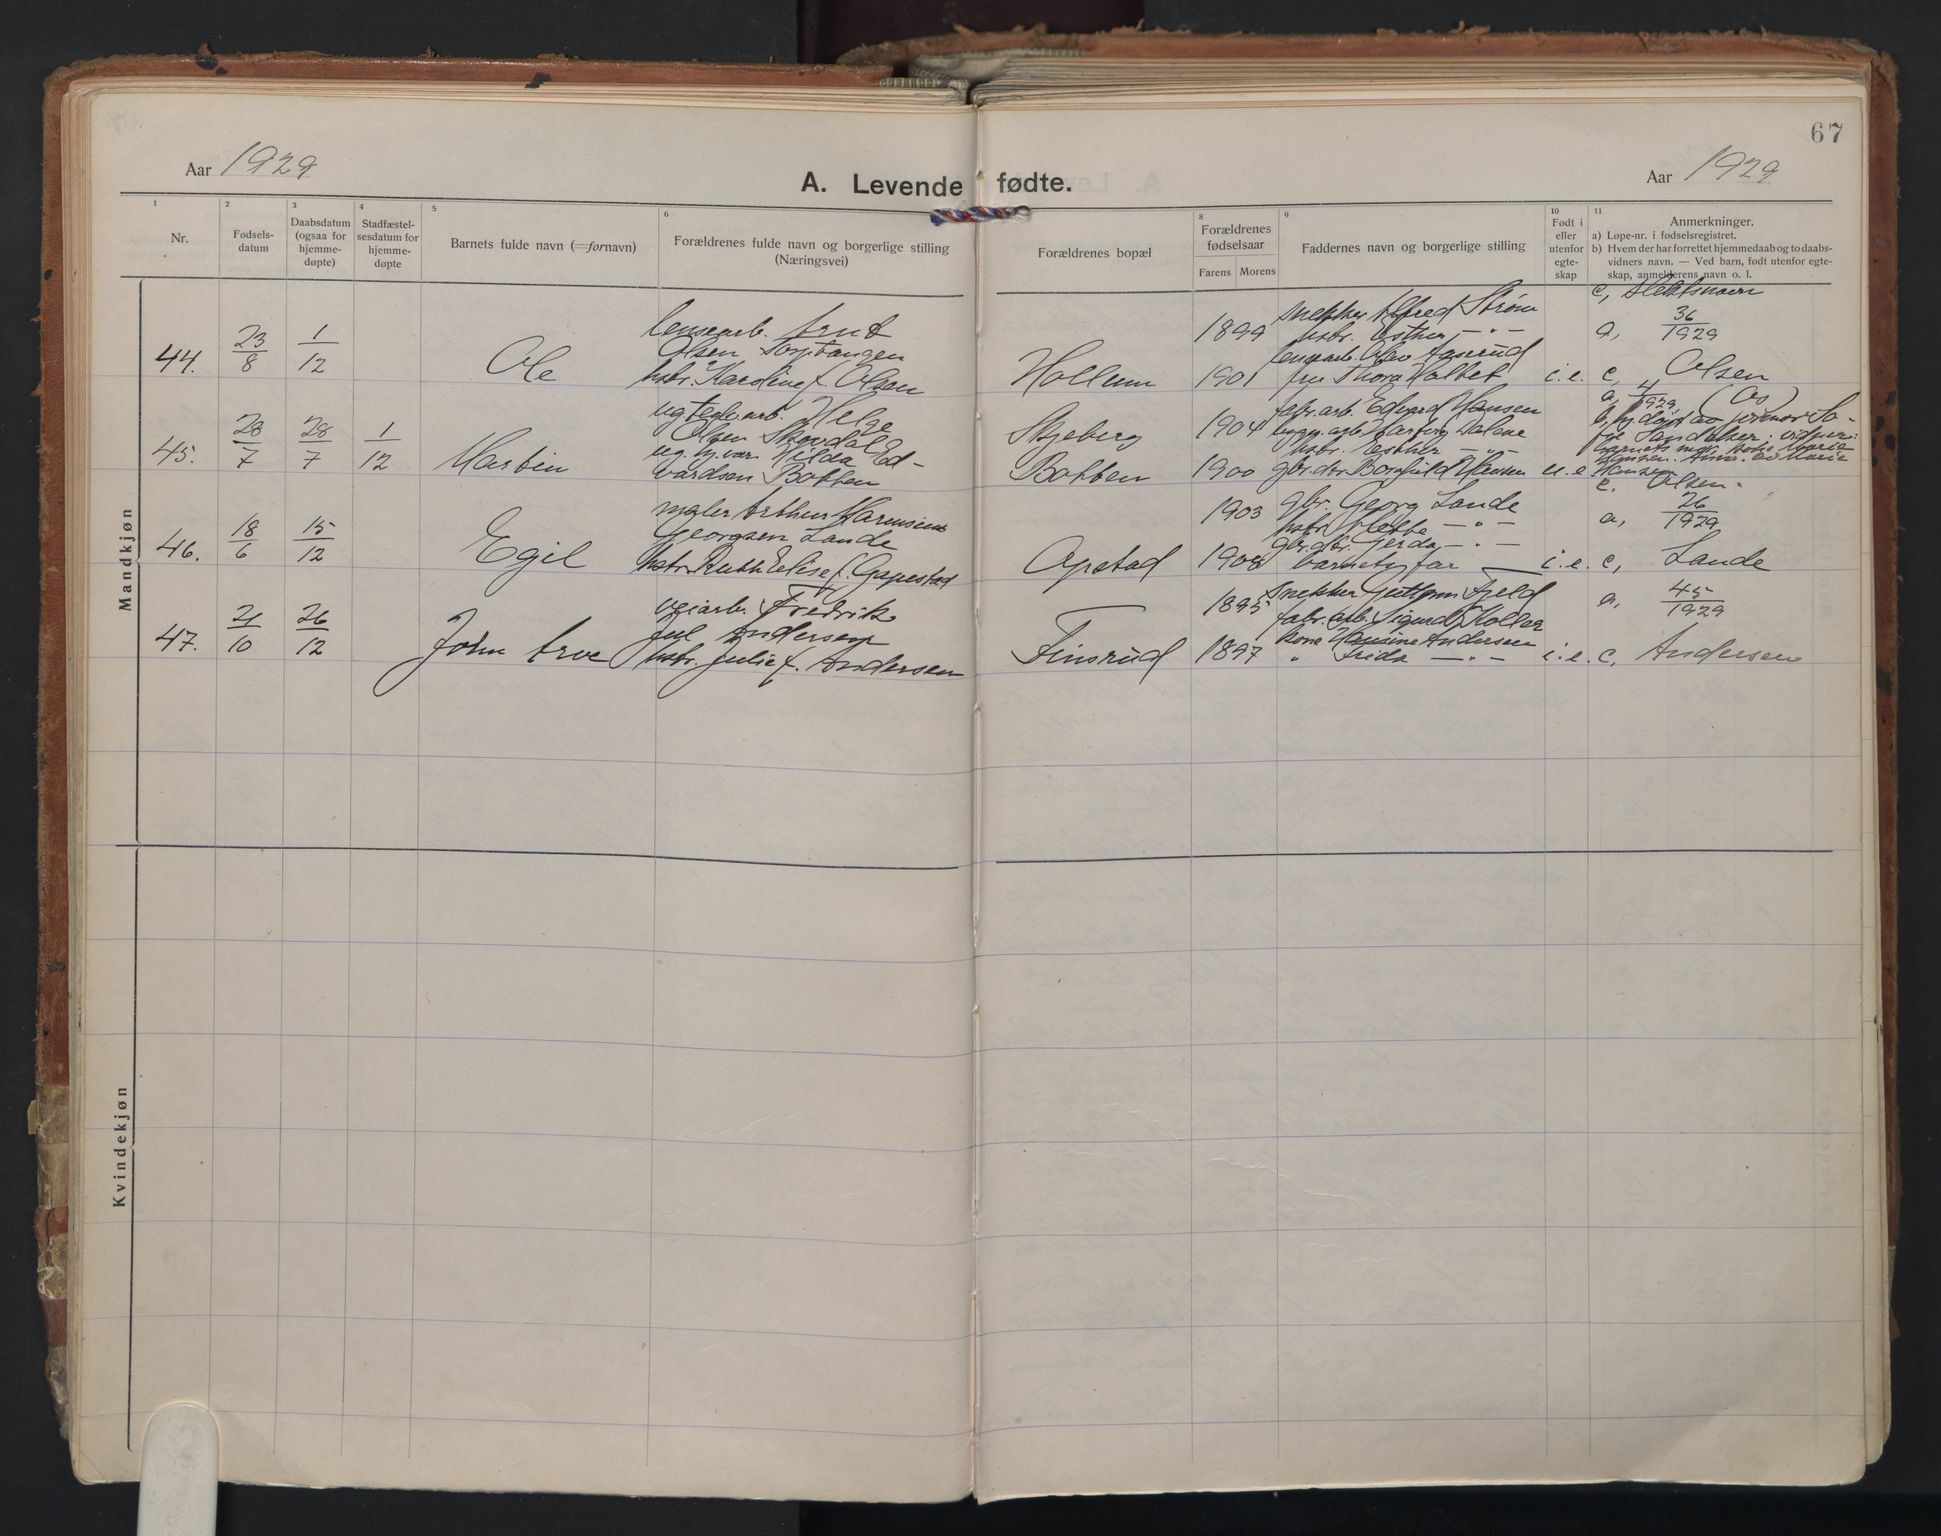 67
Aar 1929
A. Levende fødte.
Aar 1929
1 2 3 4 5 6 8 9 10 11
Nr.
Fødsels-
datum
Daabsdatum
(ogsaa for
hjemme-
døpte)
Stadfæstel-
sesdatum for
hjemme-
døpte
Barnets fulde navn (=fornavn)
Forældrenes fulde navn og borgerlige stilling
(Næringsvei)
Forældrenes bopæl
Forældrenes
fødselsaar
Farens Morens
Faddernes navn og borgerlige stilling
Født i
eller
utenfor
egte-
skap
Anmerkninger.
a) Løpe-nr. i fødselsregistret.
b) Hvem der har forrettet hjemmedaab og to daabs-
vidners navn. — Ved barn, født utenfor egte-
skap, anmelderens navn o. l.
c, Slektsnavn
Mandkjøn
44.
23/8
1/12
Ole
lensearb. Arnt
Olsen Torptangen
hstr. Karoline f. Olsen
Hollum
1899
1901
snekker Alfred Strøm
hstr. Esther — " —
lensearb. Olav Aaserud
fru Thora Holbet
i. e.
a, 36/1929
c, Olsen
45.
28/7
28/7
1/12
Martin
ug. teglv.arb. Helge
Olsen Skjevdal
ug. h.vær. Hilda Ed-
vardsen Botten
Skjeberg
Botten
1904
1900
fabr.arb. Edvard Hansen
hstr. Esther — " —
gbr.dtr. Borghild Hansen
u. e
a, 4/1929 (As)
b, hj.døpt av jormor So-
Hansen
c. Olsen.
46.
18/6
15/12
Egil
maler Arthur Marensius
Georgsen Lande
hstr. Ruth Elise f. Gapestad
Opstad
1903
1908
gbr. Georg Lande
hstr. — " —
gbr.dtr. Gerda — " —
barnets far —
i. e.
a, 26/1929
c, Lande
47.
21/10
26/12
John Arve
veiarb. Fredrik
Jul Andersen
hstr. Julie f. Andersen
Finsrud
1895
1897
snekker Guttorm Fjeld
fabr.arb. Sigurd Kollar
kone Hansine Andersen
" Frida — " —
i. e.
a, 45/1929
c, Andersen
Kvindekjøn